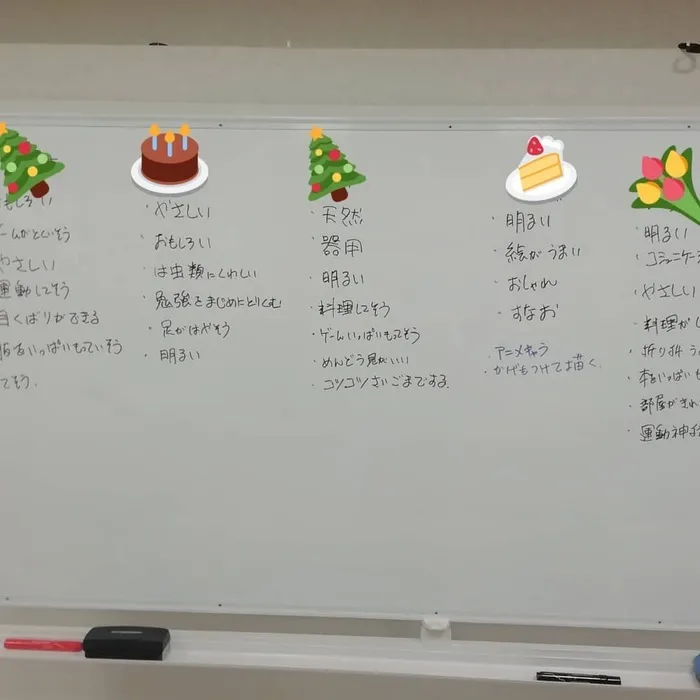 もしろい
やさしい
運動してそう
目くばりができる
いっぱいもっていそう
てそう.
・やさしい
・おもしろい
・は虫類にくわしい
・勉強をまじめにとりくむ
・足がはやそう
・明るい
・天然
・器用
・明るい
・料理してそう
・ゲームいっぱいもってそう
・めんどう見がいい
・コツコツさいごまでする.
・明るい
・絵がうまい
・おしゃれ
・すなお
・アニメキャラ
・かげもつけて描く.
・明るい
・コミュニケーシ
・やさしい
・料理が
・折り
・本をいっぱいも
・部屋がきれ
・運動神